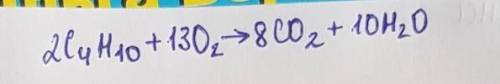 2C₄H₁₀+13O₂→8CO₂+10H₂O